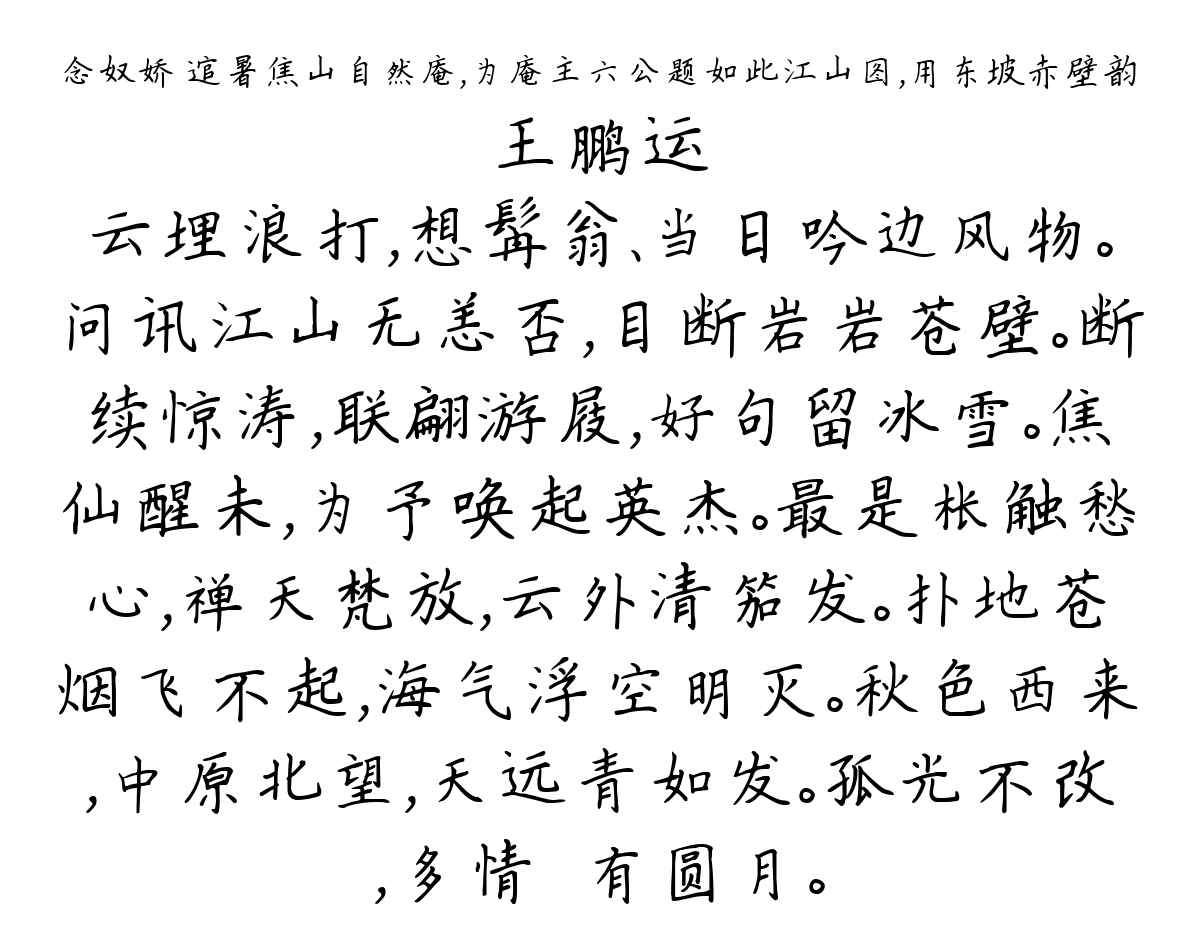 念奴娇 逭暑焦山自然庵,为庵主六公题如此江山图,用东坡赤壁韵
王鹏运
云埋浪打,想髯翁、当日吟边风物。
问讯江山无恙否,目断岩岩苍壁。断
续惊涛,联翩游屐,好句留冰雪。焦
仙醒未,为予唤起英杰。最是枨触愁
心,禅天梵放,云外清笳发。扑地苍
烟飞不起,海气浮空明灭。秋色西来
,中原北望,天远青如发。孤光不改
,多情 有圆月。